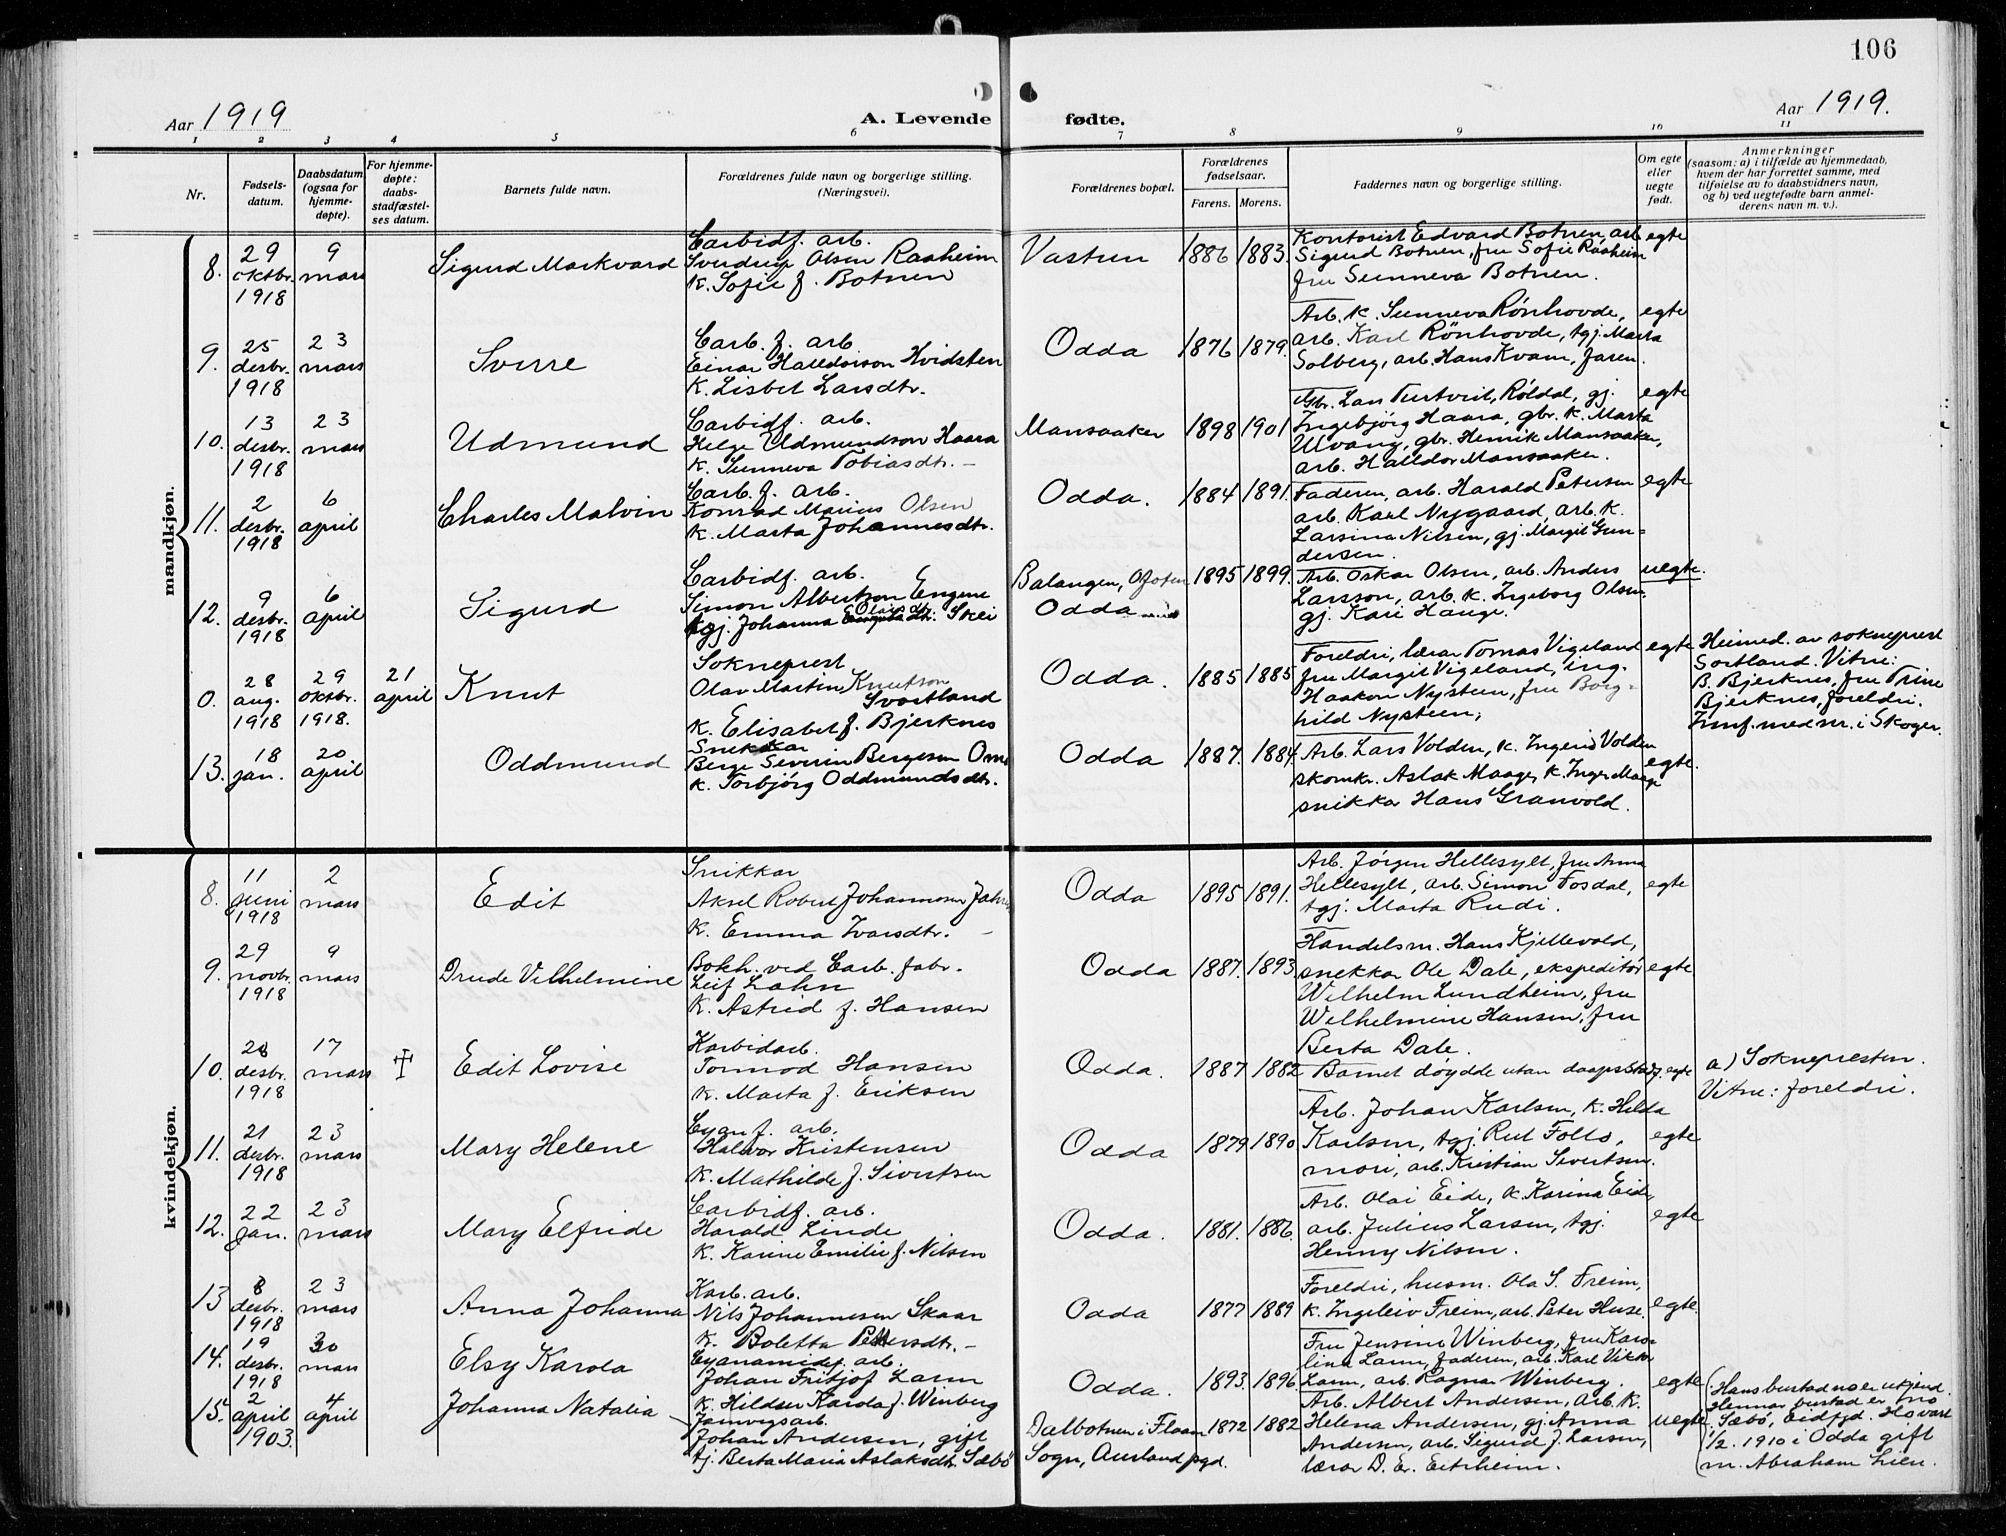 106
Aar 1919
A. Levende
fødte.
Aar 1919.
1 2 3 4 5 6 7 8 9 10 11
Nr.
Fødsels-
datum.
Daabsdatum
(ogsaa for
hjemme-
døpte).
For hjemme-
døpte:
daabs-
stadfæstel-
ses datum.
Barnets fulde navn.
Forældrenes fulde navn og borgerlige stilling.
(Næringsvei).
Forældrenes bopæl.
Forældrenes
fødselsaar.
Farens. Morens.
Faddernes navn og borgerlige stilling.
Om egte
eller
uegte
født.
Anmerkninger
(saasom: a) i tilfælde av hjemmedaab,
hvem der har forrettet samme, med
tilføielse av to daabsvidners navn,
og b) ved uegtefødte barn anmel-
derens navn m. v.).
mandkjøn.
8.
29
oktbr.
1918
9
mars
Sigurd Markvard
Carbidf. arb.
Sverdrup Olsen Raaheim
K. Sofie f. Botnen
Vastun
1886 1883.
Kontorist Edvard Botnen, arb.
Sigurd Botnen, fru Sofie Raaheim
fru Sunneva Botnen.
egte
9.
25
desbr.
1918
23
mars
Sverre
Carb. f. arb.
Einar Halldorson Hvidsten
K. Lisbet Larsdtr.
Odda
1876 1879.
Arb. K. Sunneva Rønhovde,
arb. Karl Rønhovde, tgj. Marta
Solberg, arb. Hans Kvam, faren.
egte
10.
13
desbr.
1918
23
mars
Udmund
Carbidf. arb.
Helge Udmundson Haara
K. Sunneva Tobiasdtr. –
Mansaaker
1898 1901
Gbr. Lars TufteviI, Røldal, gj.
Ingebjørg Haara, gbr. K. Marta
Ulvang, gbr. Henrik Mansaaker,
arb. Halldor Mansaaker.
egte
11.
2
desbr.
1918
6
april
Charles Malvin
Carb. f. arb.
Konrad Marius Olsen
K. Marta Johannesdtr.
Odda.
1884 1891.
Faderen, arb. Harald Petersen
arb. Karl Nygaard, arb. K.
Larsina Nilsen, gj. Margit Gun-
dersen.
egte
12.
9
desbr.
1918
6
april
Sigurd
Carbidf. arb.
Simon Albertson Engene
tgj. Johanna Olaisdtr. Skei
Balangen, Ofoten
Odda
1895 1899.
Arb. Oskar Olsen, arb. Anders
Larsson, arb. K. Ingeborg Olsen,
gj. Kari Hauge.
uegte.
0.
28
aug.
1918
29
oktbr.
1918.
21
april
Knut
Sokneprest
Olav Martin Knutson
Svortland
K. Elisabet f. Bjerknes
Odda.
1885 1885
Foreldri, lærar Tomas Vigeland
fru Margit Vigeland, ing.
Haakon Nysteen, fru Borg-
hild Nysteen;
egte
Heimed. av sokneprest
Sortland. Vitne:
B. Bjerknes, fru Trine
Bjerknes, foreldri.
Innf. med nr. i Skoger.
13.
18
jan.
20
april
Oddmund
Snekkar
Berge Severin Bergesen Omi
K. Torbjørg Oddmundsdtr.
Odda
1887. 1884
Arb. Lars Volden, K. Ingerid Volden
skomkr. Aslak Maage, K. Inger Maage
snikkar Hans Granvold.
egte.
kvindekjøn.
8.
11
juni
1918
2
mars
Edit
Snikkar
Aksel Robert Johannesen
K. Emma Ivarsdtr. –
Odda
1895 1891.
Arb. Jørgen Hellesylt, fru Anna
Hellesylt, arb. Simon Fosdal,
tgj. Marta Rudi.
egte
9.
29
novbr.
1918
9
mars
Drude Vilhelmine
Bokh. ved Carb. fabr.
Leif Lahn
K. Astrid f. Hansen
Odda
1887. 1893
Handelsm. Hans Kjellevold,
snekkar Ole Dale, ekspeditør
Wilhelm Lundheim, fru
Wilhelmine Hansen, fru
Berta Dale.
egte
10.
28
desbr.
1918
17
mars
Edit Lovise
Karbidarb.
Tormod Hansen
K. Marta f. Eriksen
Odda.
1887 1882
Barnet døydde utan daapsstadf.
egte
a) Soknepresten.
Vitne: foreldri.
11.
21
desbr.
1918
23
mars
Mary Helene
Cyan f. arb.
Halvor Kristensen
K. Mathilde f. Sivertsen
Odda
1879 1890
Arb. Johan Karlsen, K. Hilda
Karlsen, tgj. Rut Follo,
mori, arb. Kristian Sivertsen.
egte
12.
22
jan.
23
mars
Mary Elfride
Carbidf. arb.
Harald Linde
K. Karine Emilie f. Nilsen
Odda.
1881. 1886.
Arb. Olai Eide, K. Karina Eide,
arb. Julius Larsen, tgj.
Henny Nilsen.
egte
13
8
desbr.
1918
23
mars
Anna Johanna
Karb. arb.
Nils Johannesen Skaar
K. Boletta Pettersdtr. –
Odda
1877 1889
Foreldri, husm. Ola S. Freim,
K. Ingeleiv Freim, arb. Peter Huse.
egte.
14.
19
desbr.
1918
30
mars
Elsy Karola
Cyanamidf. arb.
Johan Fritjof Larm
K. Hildur Karola f. Winberg
Odda.
1893. 1896
Fru Jensine Winberg, fru Karo-
lina Larm, faderen, arb. Karl Viktor
Larm, arb. Ragnar Winberg.
egte
15.
2
april
1903.
4
april
Johanna Natalia
Jarnvegsarb.
Johan Andersen, gift
tj. Berta Maria Aslaksdtr. Sæbø
Dalbotnen i Flaam
Sogn, Aurland pgd.
1872 1882
Arb. Albert Andersen, arb. K.
Helena Andersen, gj. Anna
Andersen, arb. Sigurd J. Larsen,
lærar D. Er. Eitrheim.
uegte
Hans bustad no er ukjend.
Hennar bustad er no
Sæbø, Eidfjd. Ho vart
1/2. 1910 i Odda gift
m. Abraham Lien.